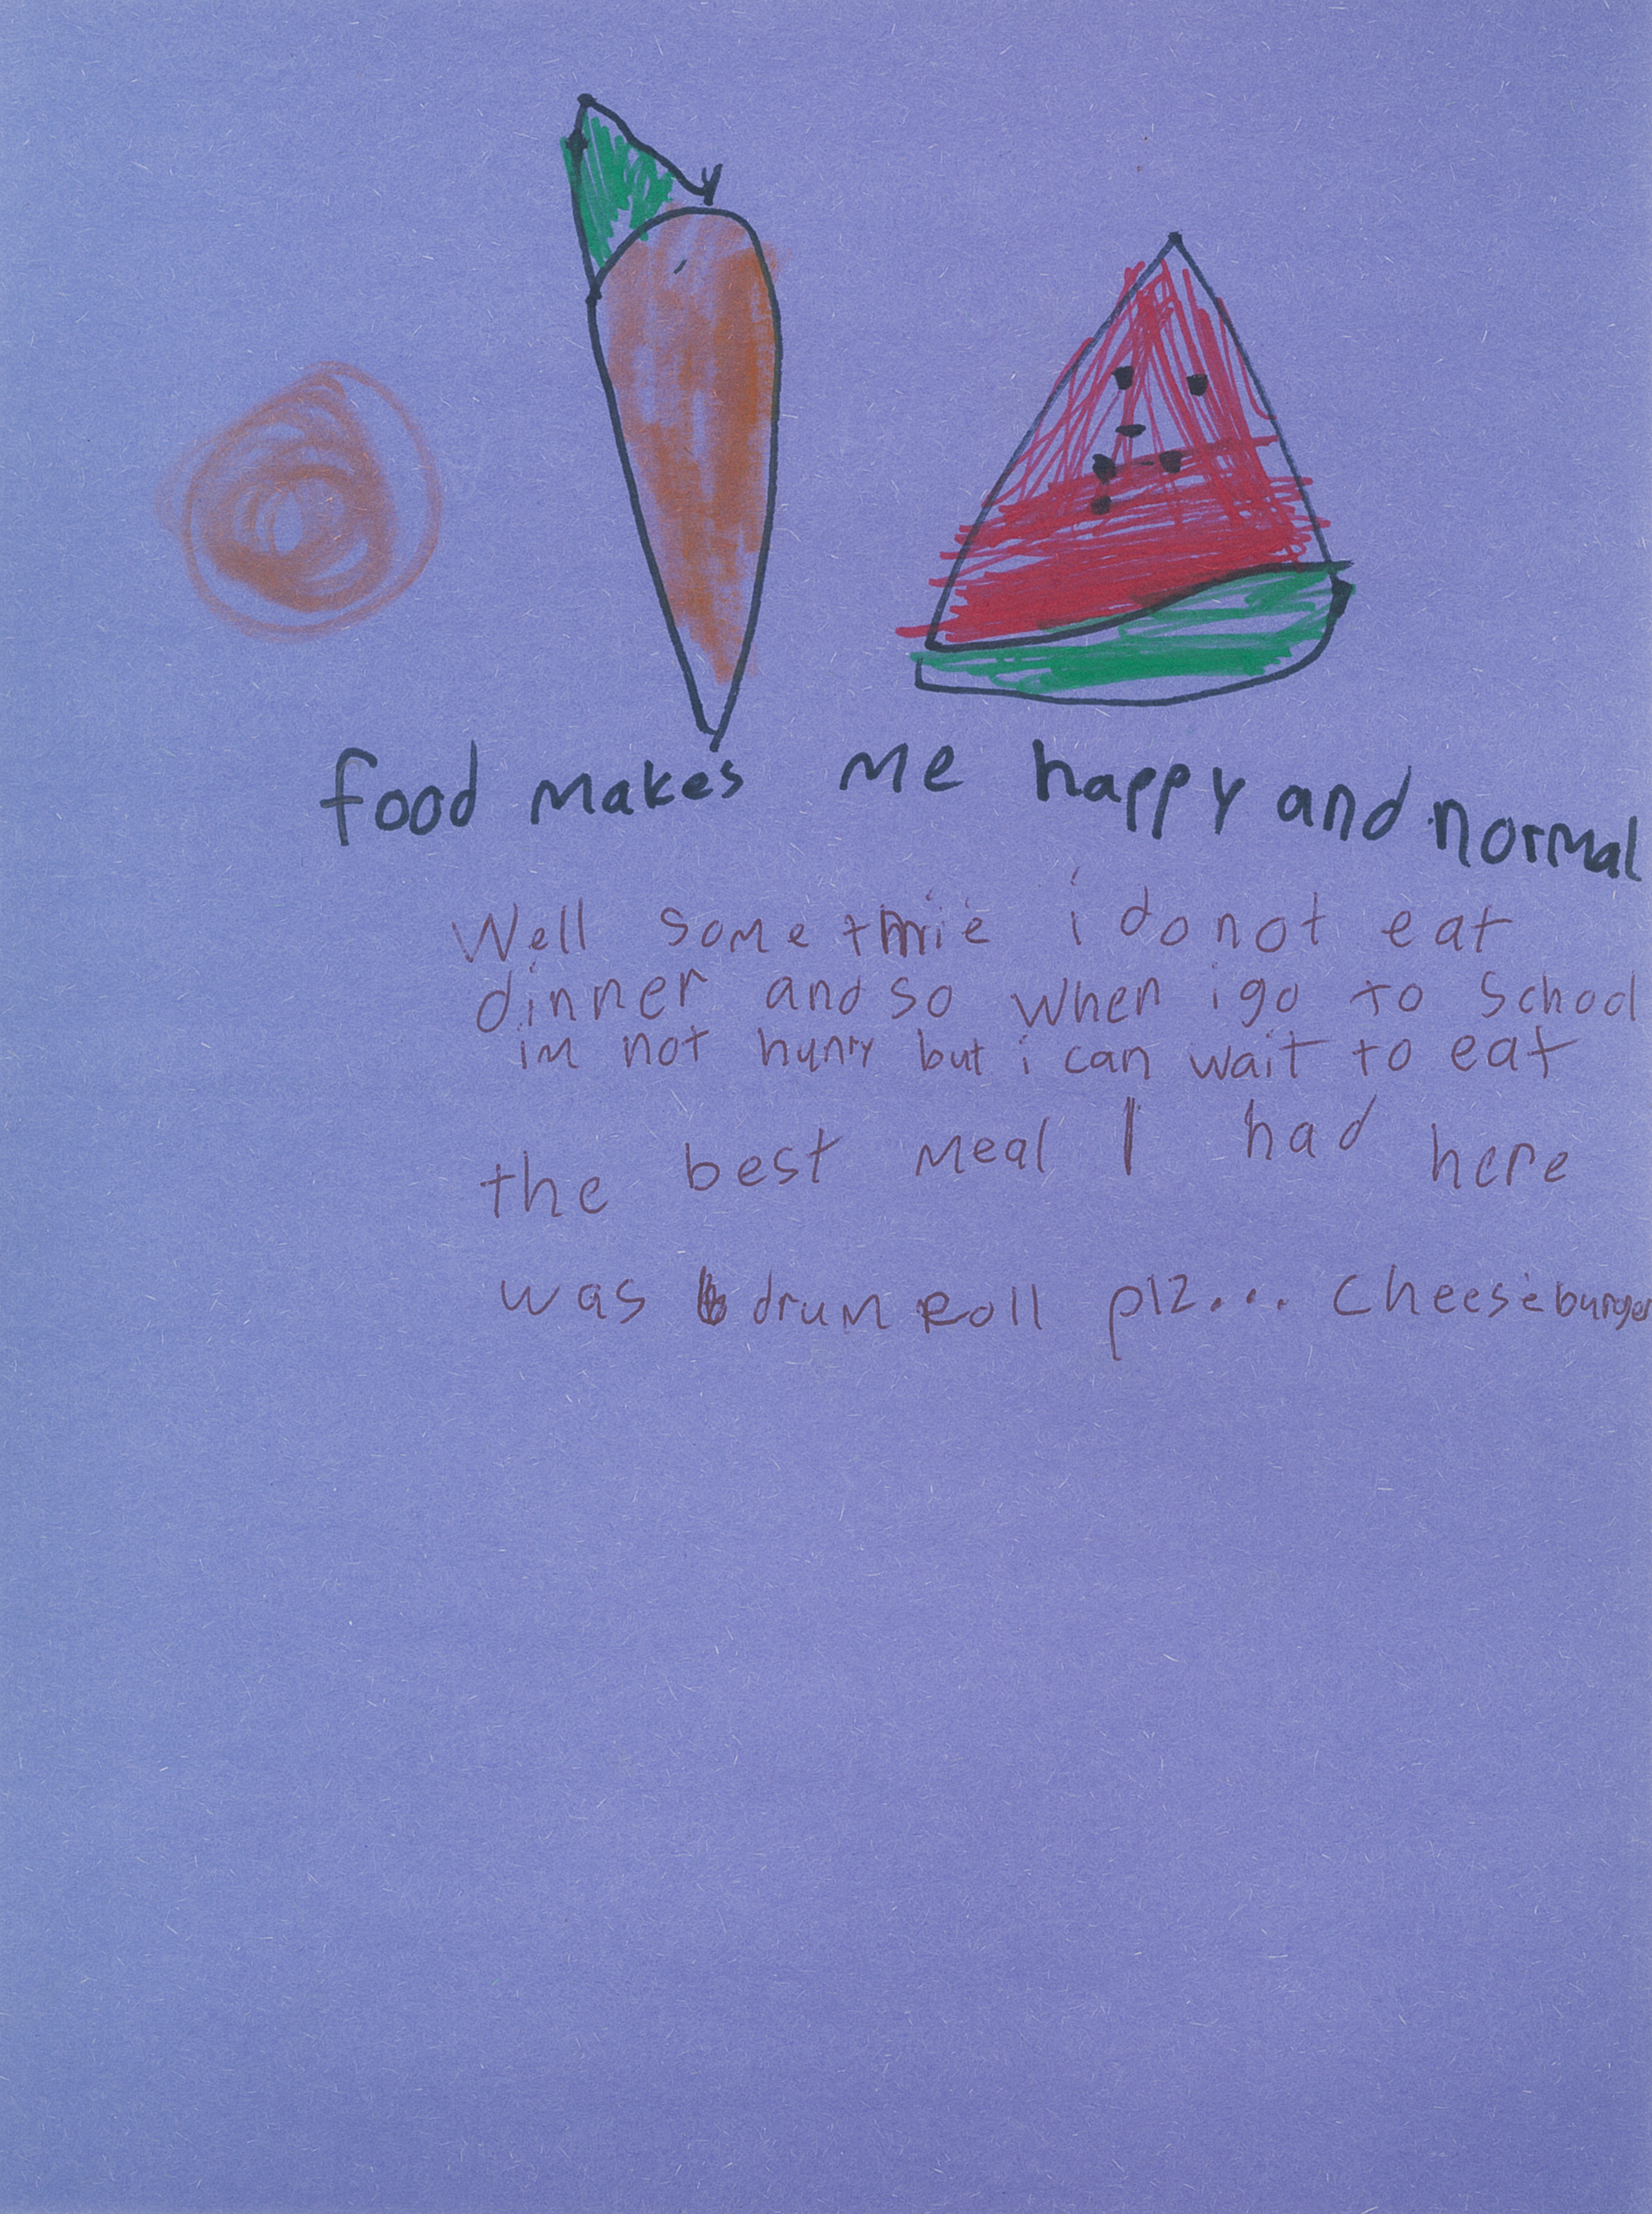 food makes me happy and normal
Well some tmie i do not eat
dinner and so when i go to School
im not hunry but i can wait to eat
the best meal I had here
was drum Roll plz... cheeseburger